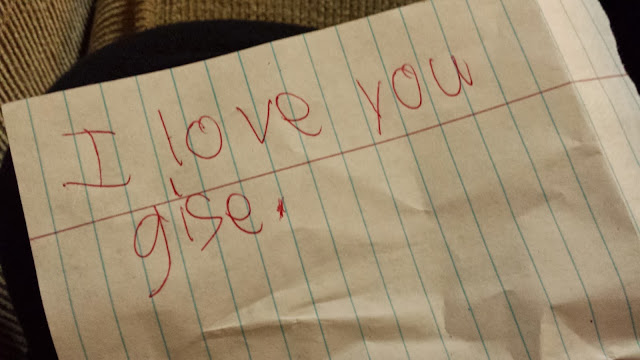 I love you
gise.